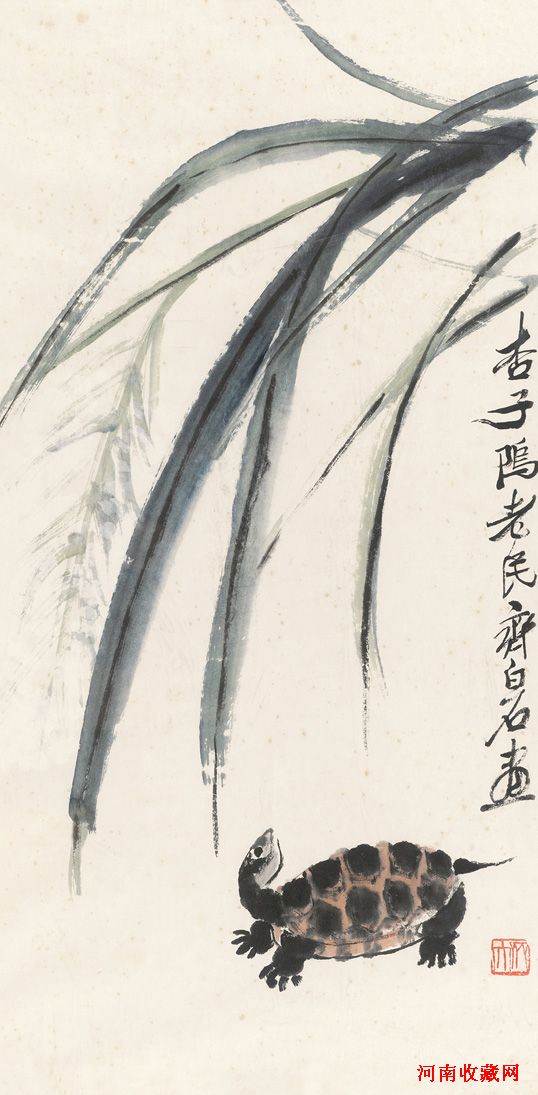 杏子隖老民齊白石畫
河南收藏网